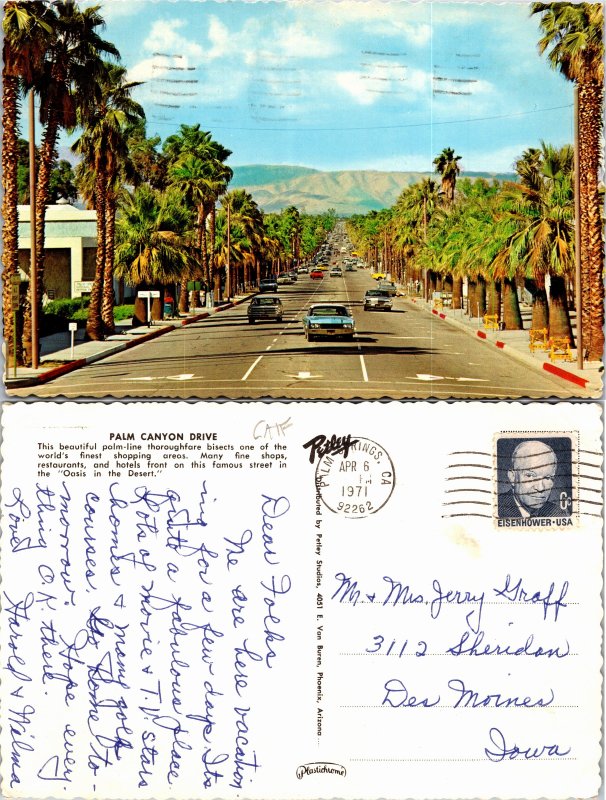 PALM CANYON DRIVE
This beautiful palm-line thoroughfare bisects one of the
world's finest shopping areas. Many fine shops,
restaurants, and hotels front on this famous street in
the "Oasis in the Desert."
CALIF
Petley
PALM SPRINGS, CA
APR 6
PM
1971
92262
EISENHOWER·USA
Distributed by Petley Studios, 4051 E. Van Buren, Phoenix, Arizona
Dear Folks
We are here vacation-
ing for a few days. Its
quite a fabulous place
Lots of movie & T.V. stars
homes & many golf
courses. Go Home to-
morrow. Hope every-
thing O.K. there.
Love Harold & Wilma
Mr. & Mrs. Jerry Graff
3112 Sheridan
Des Moines
Iowa
Plastichrome